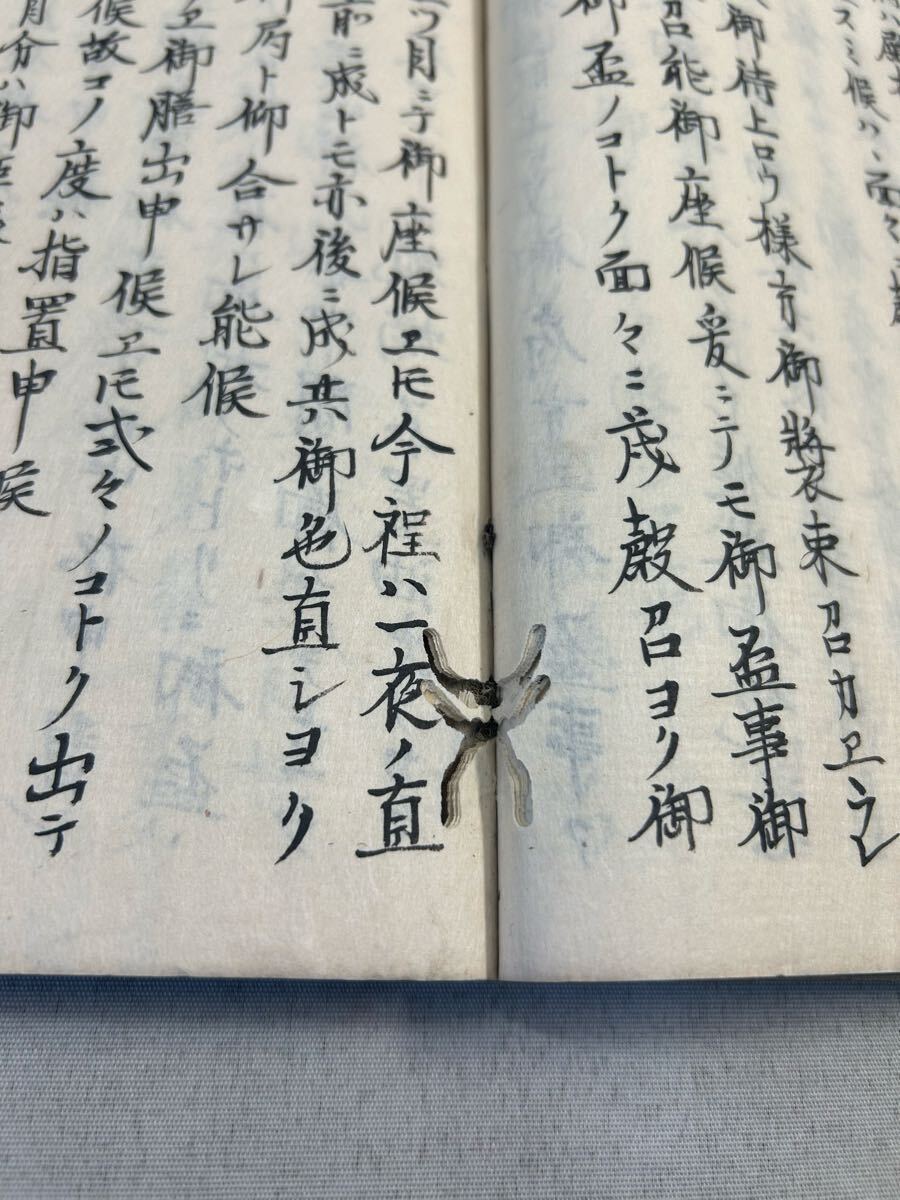 スミ候ハヽ面々ニ
御待上ロウ様方御裝束召カヱラレ
召能御座候爰ニテモ御盃事御
御盃ノコトク面々ニ茂殿召ヨリ御
ツ月ニテ御座候ヱ圧今程ハ一夜ノ直
前ニ成トモ亦後ニ成共御色直シヨク
局ト仰合サレ能候
ヱ御膳出申候ヱ圧式々ノコトク出テ
候故コノ度ハ指置申候
月分ハ御